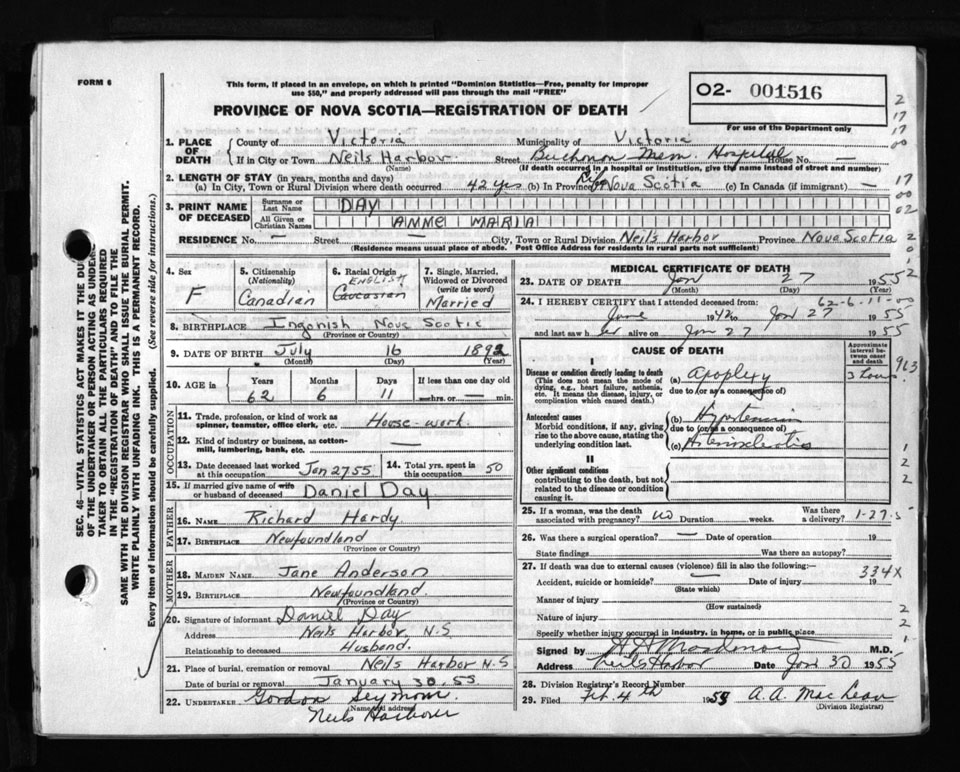 FORM 6
This form, if placed in an envelope, on which is printed "Dominion Statistics—Free, penalty for improper
use $50," and properly addressed will pass through the mail "FREE"
PROVINCE OF NOVA SCOTIA—REGISTRATION OF DEATH
02- 001516
For use of the Department only
2
17
17
00
SEC. 46—VITAL STATISTICS ACT MAKES IT THE DU
OF THE UNDERTAKER OR PERSON ACTING AS UNDER
TAKER TO OBTAIN ALL THE PARTICULARS REQUIRED
IN THE "REGISTRATION OF DEATH" AND TO FILE THE
SAME WITH THE DIVISION REGISTRAR WHO SHALL ISSUE THE BURIAL PERMIT.
WRITE PLAINLY WITH UNFADING INK. THIS IS A PERMANENT RECORD.
Every item of information should be carefully supplied. (See reverse side for instructions.)
1. PLACE OF DEATH
County of Victoria Municipality of Victoria
If in City or Town Neils Harbor Street Buchonon Mem. Hospital House No. —
(Name) (If death occurred in a hospital or institution, give the name instead of street and number)
2. LENGTH OF STAY (in years, months and days)
(a) In City, Town or Rural Division where death occurred 42 yrs (b) In Province Life Nova Scotia (c) In Canada (if immigrant) —
17
00
02
3. PRINT NAME OF DECEASED
Surname or Last Name DAY
All Given or Christian Names AMME MARIA
RESIDENCE No. — Street — City, Town or Rural Division Neil's Harbor Province Nova Scotia
(Residence means usual place of abode. Post Office Address for residents in rural parts not sufficient)
4. Sex F
5. Citizenship (Nationality) Canadian
6. Racial Origin ENGLISH Caucasian
7. Single, Married, Widowed or Divorced (write the word) Married
8. BIRTHPLACE Ingonish Nova Scotia
(Province or Country)
9. DATE OF BIRTH July 16 1892
(Month) (Day) (Year)
10. AGE in Years Months Days If less than one day old
62 6 11 —hrs. or — min.
OCCUPATION
11. Trade, profession, or kind of work as spinner, teamster, office clerk, etc. House-work.
12. Kind of industry or business, as cotton-mill, lumbering, bank, etc. —
13. Date deceased last worked at this occupation Jan 27 55 14. Total yrs. spent in this occupation 50
15. If married give name of wife or husband of deceased Daniel Day
FATHER
16. NAME Richard Hardy
17. BIRTHPLACE Newfoundland
(Province or Country)
MOTHER
18. MAIDEN NAME Jane Anderson
19. BIRTHPLACE Newfoundland
(Province or Country)
20. Signature of informant Daniel Day
Address Neils Harbor, N.S
Relationship to deceased Husband.
21. Place of burial, cremation or removal Neils Harbor N.S
Date of burial or removal January 30.55
22. UNDERTAKER Gordon Seymour.
(Name and address)
Neils Harbour
MEDICAL CERTIFICATE OF DEATH
23. DATE OF DEATH Jan 27 1955
(Month) (Day) (Year)
24. I HEREBY CERTIFY that I attended deceased from:
62-6-11-00
June 1942 to Jan 27 1955
and last saw her alive on Jan 27 1955
CAUSE OF DEATH
Approximate interval between onset and death
I
Disease or condition directly leading to death
(This does not mean the mode of dying, e.g., heart failure, asthenia, etc. It means the disease, injury, or complication which caused death.)
(a) Apoplexy 3 hours
963
due to (or as a consequence of)
Antecedent causes
Morbid conditions, if any, giving rise to the above cause, stating the underlying condition last.
(b) Hypertension
due to (or as a consequence of)
(c) Arteriosclerotis
II
Other significant conditions contributing to the death, but not related to the disease or condition causing it.
1
2
2
25. If a woman, was the death associated with pregnancy? no Duration weeks. Was there a delivery? 1-27-5
26. Was there a surgical operation? — Date of operation 19
State findings Was there an autopsy?
27. If death was due to external causes (violence) fill in also the following:—
334X
Accident, suicide or homicide? Date of injury 19
(State which)
Manner of injury
(How sustained)
Nature of injury
2
2
1
Specify whether injury occurred in industry, in home, or in public place
Signed by M.D.
Address Neils Harbor Date Jan 30 1955
28. Division Registrar's Record Number
29. Filed Feb. 4th 1955 A.A. MacLean
(Division Registrar)